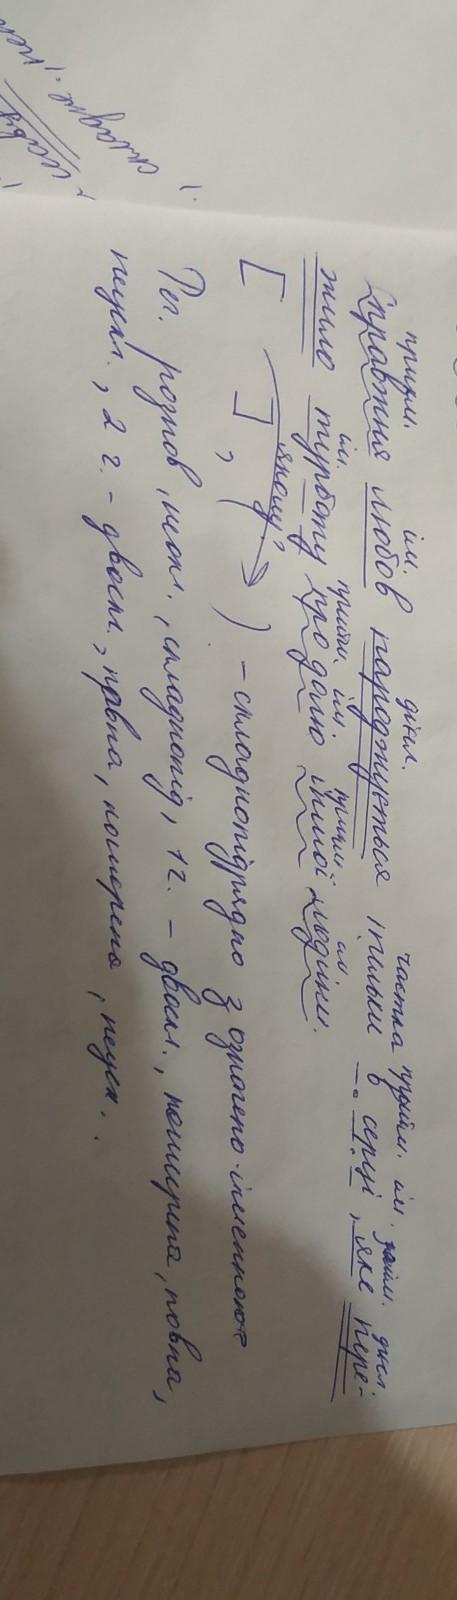 прикм. ім. дієсл. частка прийм. ім. займ. дієсл.
Справжня любов народжується тільки в серці, яке пере-
ім. прийм. ім. прикм. ім.
жило турботу про долю іншої людини.
[ ], ( якому? ) – складнопідрядно з означено-іменною
Реч. розпов., неокл., складнопід, 1 г. – двоскл., поширена, повна,
неускл., 2 г. – двоскл., повна, поширено, неускл.
складне